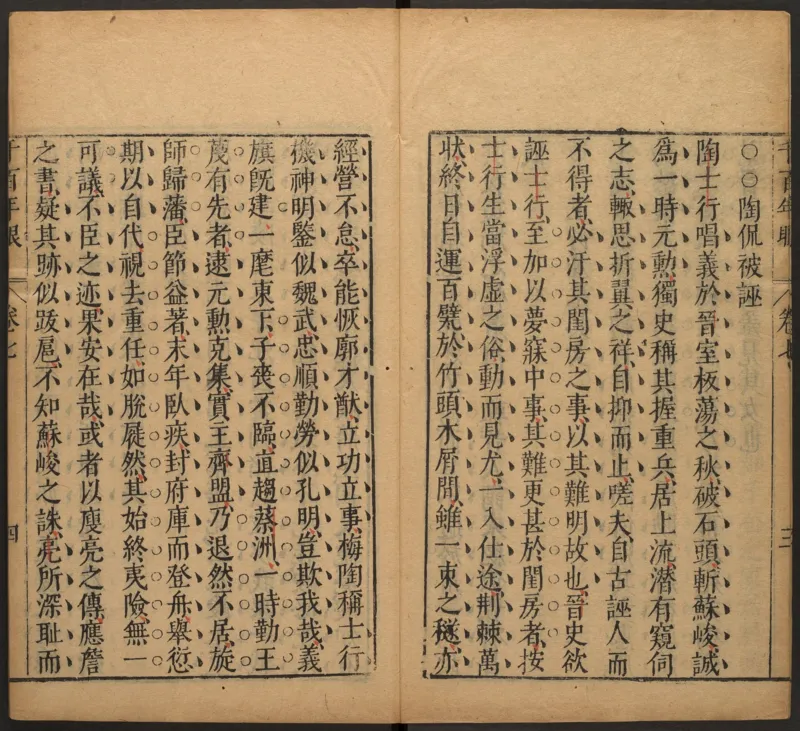 ○○陶侃被誣
陶士行唱義於晉室板蕩之秋破石頭斬蘇峻誠
爲一時元勲獨史稱其握重兵居上流潛有窺伺
之志輙思折翼之祥自抑而止嗟夫自古誣人而
不得者必汙其閨房之事以其難明故也晉史欲
誣士行至加以夢寐中事其難更甚於閨房者按
士行生當浮虛之俗動而見尤一入仕途荆棘萬
狀終日自運百甓於竹頭木屑間雖一束之穟亦
經營不怠卒能恢廓才猷立功立事梅陶稱士行
機神明鑒似魏武忠順勤勞似孔明豈欺我哉義
旗旣建一麾東下子喪不臨直趨蔡洲一時勤王
蔑有先者逮元勲克集實主齊盟乃退然不居旋
師歸藩臣節益著末年臥疾封府庫而登舟舉愆
期以自代視去重任如脫屣然其始終夷險無一
可議不臣之迹果安在哉或者以廋亮之傳應詹
之書疑其跡似跋扈不知蘇峻之誅亮所深耻而
千百年眼
卷七
三
千百年眼
卷七
四